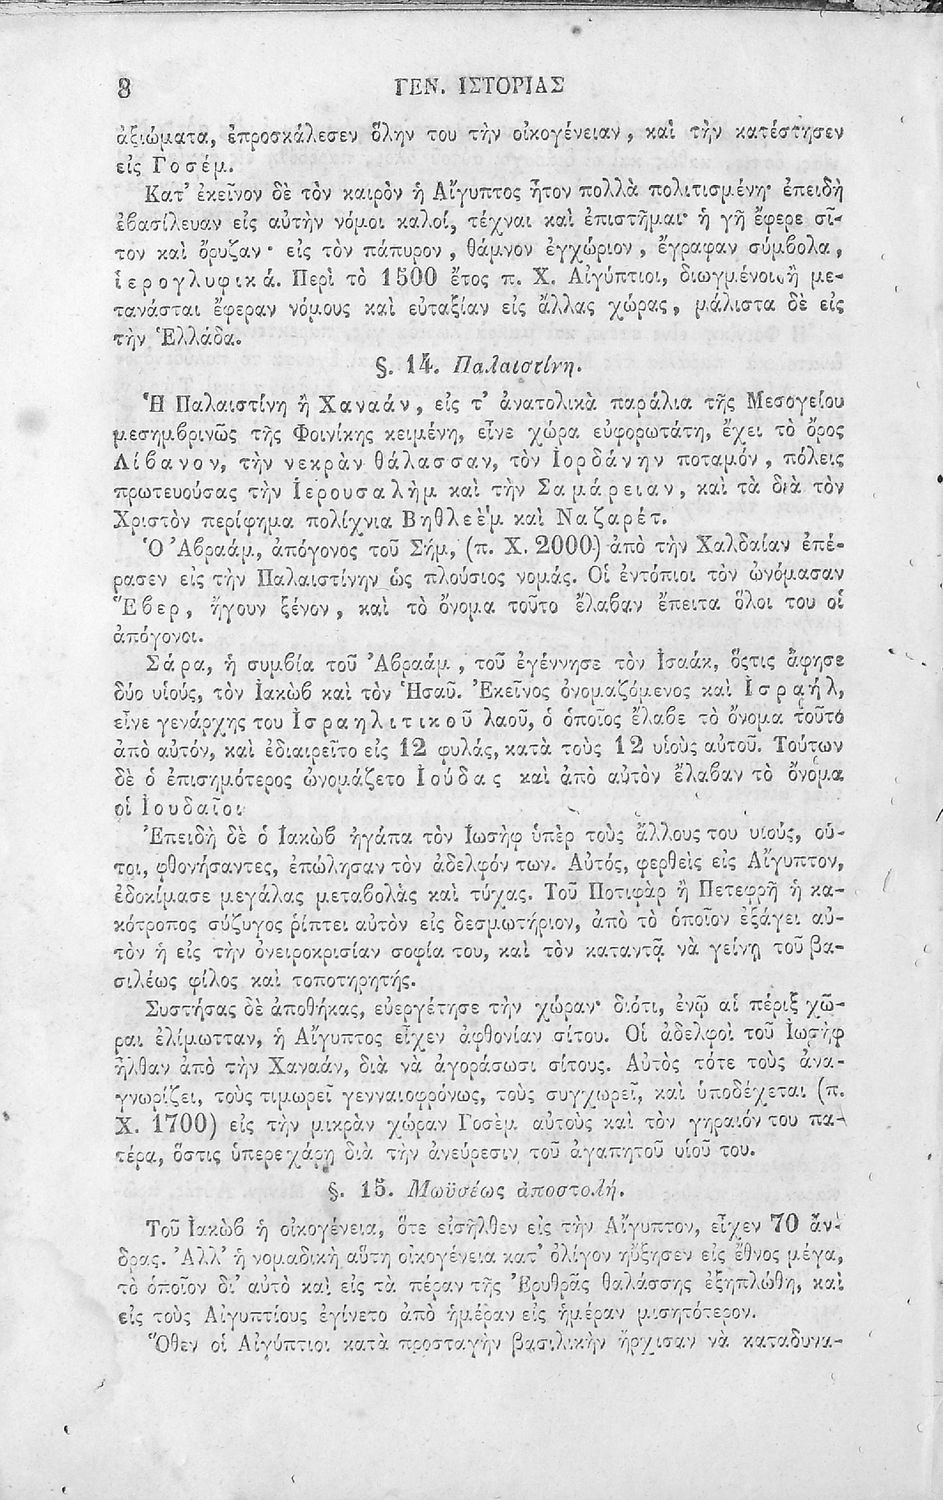 8 ΓΕΝ. ΙΣΤΟΡΙΑΣ
ἀξιώματα, ἐπροσκάλεσεν ὅλην του τὴν οἰκογένειαν, καὶ τὴν κατέστησεν
εἰς Γοσέμ.
Κατ' ἐκεῖνον δὲ τὸν καιρὸν ἡ Αἴγυπτος ἦτον πολλὰ πολιτισμένη· ἐπειδὴ
ἐβασίλευαν εἰς αὐτὴν νόμοι καλοί, τέχναι καὶ ἐπιστῆμαι· ἡ γῆ ἔφερε σῖ-
τον καὶ ὄρυζαν· εἰς τὸν πάπυρον, θάμνον ἐγχώριον, ἔγραφαν σύμβολα,
ἱερογλυφικά. Περὶ τὸ 1500 ἔτος π. Χ. Αἰγύπτιοι, διωγμένοι ἢ με-
τανάσται ἔφεραν νόμους καὶ εὐταξίαν εἰς ἄλλας χώρας, μάλιστα δὲ εἰς
τὴν Ἑλλάδα.
§. 14. Παλαιστίνη.
Ἡ Παλαιστίνη ἢ Χαναάν, εἰς τ' ἀνατολικὰ παράλια τῆς Μεσογείου
μεσημβρινῶς τῆς Φοινίκης κειμένη, εἶνε χώρα εὐφορωτάτη, ἔχει τὸ ὄρος
Λίβανον, τὴν νεκρὰν θάλασσαν, τὸν Ἰορδάνην ποταμόν, πόλεις
πρωτευούσας τὴν Ἱερουσαλὴμ καὶ τὴν Σαμάρειαν, καὶ τὰ διὰ τὸν
Χριστὸν περίφημα πολίχνια Βηθλεὲμ καὶ Ναζαρέτ.
Ὁ Ἀβραάμ, ἀπόγονος τοῦ Σήμ, (π. Χ. 2000) ἀπὸ τὴν Χαλδαίαν ἐπέ-
ρασεν εἰς τὴν Παλαιστίνην ὡς πλούσιος νομάς. Οἱ ἐντόπιοι τὸν ὠνόμασαν
Ἕβερ, ἤγουν ξένον, καὶ τὸ ὄνομα τοῦτο ἔλαβαν ἔπειτα ὅλοι του οἱ
ἀπόγονοι.
Σάρα, ἡ συμβία τοῦ Ἀβραάμ, τοῦ ἐγέννησε τὸν Ἰσαάκ, ὅςτις ἄφησε
δύο υἱούς, τὸν Ἰακὼβ καὶ τὸν Ἡσαῦ. Ἐκεῖνος ὀνομαζόμενος καὶ Ἰσραήλ,
εἶνε γενάρχης του Ἰσραηλιτικοῦ λαοῦ, ὁ ὁποῖος ἔλαβε τὸ ὄνομα τοῦτο
ἀπὸ αὐτόν, καὶ ἐδιαιρεῖτο εἰς 12 φυλάς, κατὰ τοὺς 12 υἱοὺς αὐτοῦ. Τούτων
δὲ ὁ ἐπισημότερος ὠνομάζετο Ἰούδας καὶ ἀπὸ αὐτὸν ἔλαβαν τὸ ὄνομα
οἱ Ἰουδαῖοι
Ἐπειδὴ δὲ ὁ Ἰακὼβ ἠγάπα τὸν Ἰωσὴφ ὑπὲρ τοὺς ἄλλους του υἱούς, οὗ-
τοι, φθονήσαντες, ἐπώλησαν τὸν ἀδελφόν των. Αὐτός, φερθεὶς εἰς Αἴγυπτον,
ἐδοκίμασε μεγάλας μεταβολὰς καὶ τύχας. Τοῦ Ποτιφὰρ ἢ Πετεφρῆ ἡ κα-
κότροπος σύζυγος ῥίπτει αὐτὸν εἰς δεσμωτήριον, ἀπὸ τὸ ὁποῖον ἐξάγει αὐ-
τὸν ἡ εἰς τὴν ὀνειροκρισίαν σοφία του, καὶ τὸν καταντᾷ νὰ γείνῃ τοῦ βα-
σιλέως φίλος καὶ τοποτηρητής.
Συστήσας δὲ ἀποθήκας, εὐεργέτησε τὴν χώραν· διότι, ἐνῷ αἱ πέριξ χῶ-
ραι ἐλίμωτταν, ἡ Αἴγυπτος εἶχεν ἀφθονίαν σίτου. Οἱ ἀδελφοὶ τοῦ Ἰωσὴφ
ἦλθαν ἀπὸ τὴν Χαναάν, διὰ νὰ ἀγοράσωσι σίτους. Αὐτὸς τότε τοὺς ἀνα-
γνωρίζει, τοὺς τιμωρεῖ γενναιοφρόνως, τοὺς συγχωρεῖ, καὶ ὑποδέχεται (π.
Χ. 1700) εἰς τὴν μικρὰν χώραν Γοσὲμ αὐτοὺς καὶ τὸν γηραιόν του πα-
τέρα, ὅστις ὑπερεχάρη διὰ τὴν ἀνεύρεσιν τοῦ ἀγαπητοῦ υἱοῦ του.
§. 15. Μωϋσέως ἀποστολή.
Τοῦ Ἰακὼβ ἡ οἰκογένεια, ὅτε εἰσῆλθεν εἰς τὴν Αἴγυπτον, εἶχεν 70 ἄν-
δρας. Ἀλλ' ἡ νομαδικὴ αὕτη οἰκογένεια κατ' ὀλίγον ηὔξησεν εἰς ἔθνος μέγα,
τὸ ὁποῖον δι' αὐτὸ καὶ εἰς τὰ πέραν τῆς Ἐρυθρᾶς θαλάσσης ἐξηπλώθη, καὶ
εἰς τοὺς Αἰγυπτίους ἐγίνετο ἀπὸ ἡμέραν εἰς ἡμέραν μισητότερον.
Ὅθεν οἱ Αἰγύπτιοι κατὰ προσταγὴν βασιλικὴν ἤρχισαν νὰ καταδυνα-